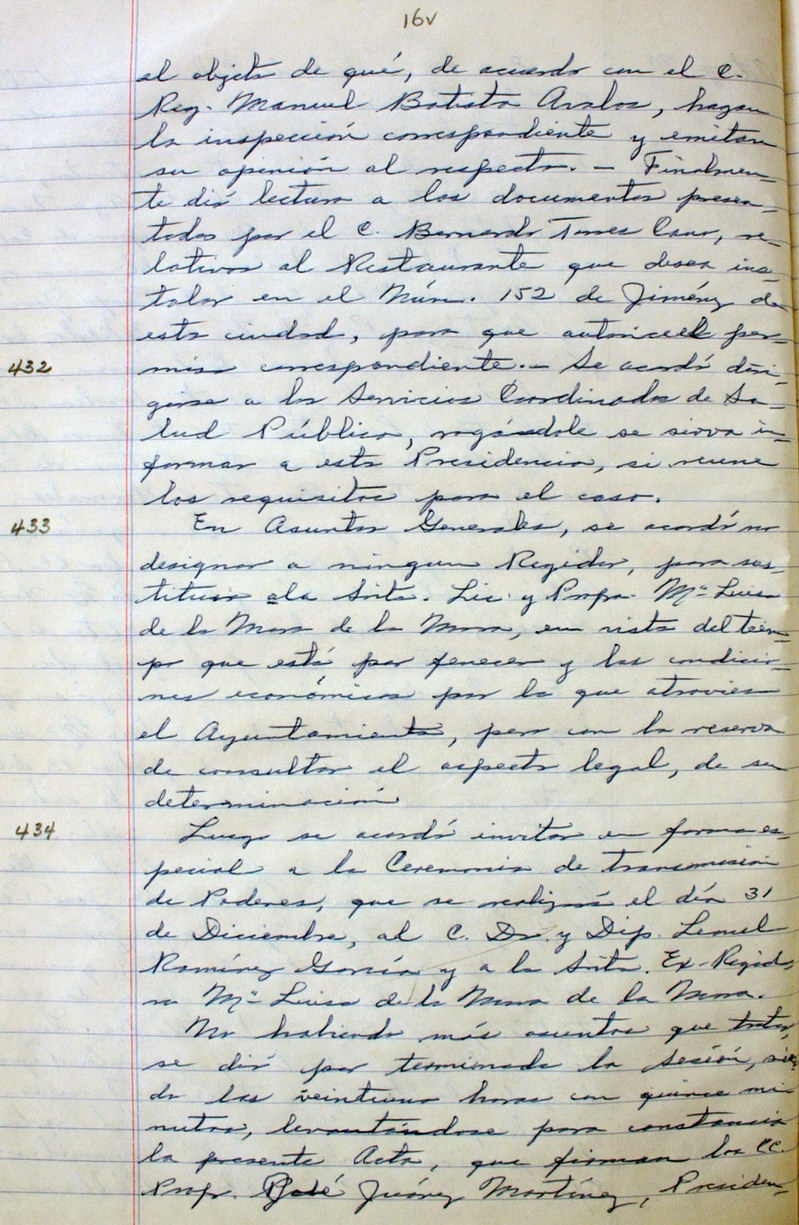 16v
al objeto de qué, de acuerdo con el C.
Reg. Manuel Batista Avalos, hagan
la inspección correspondiente y emitan
su opinión al respecto. — Finalmen-
te dió lectura a los documentos presen-
tados por el C. Bernardo Torres Cano, re-
lativos al Restaurante que desea ins-
talar en el Núm. 152 de Jiménez de
esta ciudad, para que autorice el per-
432 miso correspondiente. — Se acordó diri-
girse a los Servicios Coordinados de Sa-
lud Pública, rogándole se sirva in-
formar a esta Presidencia, si reune
los requisitos para el caso.
433 En Asuntos Generales, se acordó no
designar a ningun Regidor, para sus-
tituir a la Srita. Lic. y Profa. Mª Luisa
de la Mora de la Mora, en vista del tiem-
po que está por fenecer y las condicio-
nes económicas por la que atraviesa
el Ayuntamiento, pero con la reserva
de consultar el aspecto legal, de su
determinación
434 Luego se acordó invitar en forma es-
pecial a la Ceremonia de transmisión
de Poderes, que se realizará el día 31
de Diciembre, al C. Dr. y Dip. Lemuel
Ramírez García y a la Srita. Ex-Regido
ra Mª Luisa de la Mora de la Mora.
No habiendo más asuntos que tratar,
se dió por terminada la Sesión, sien
do las veintiuna horas con quince mi
nutos, levantándose para constancia
la presente Acta, que firman los CC.
Prof. José Juárez Martínez, Presiden-